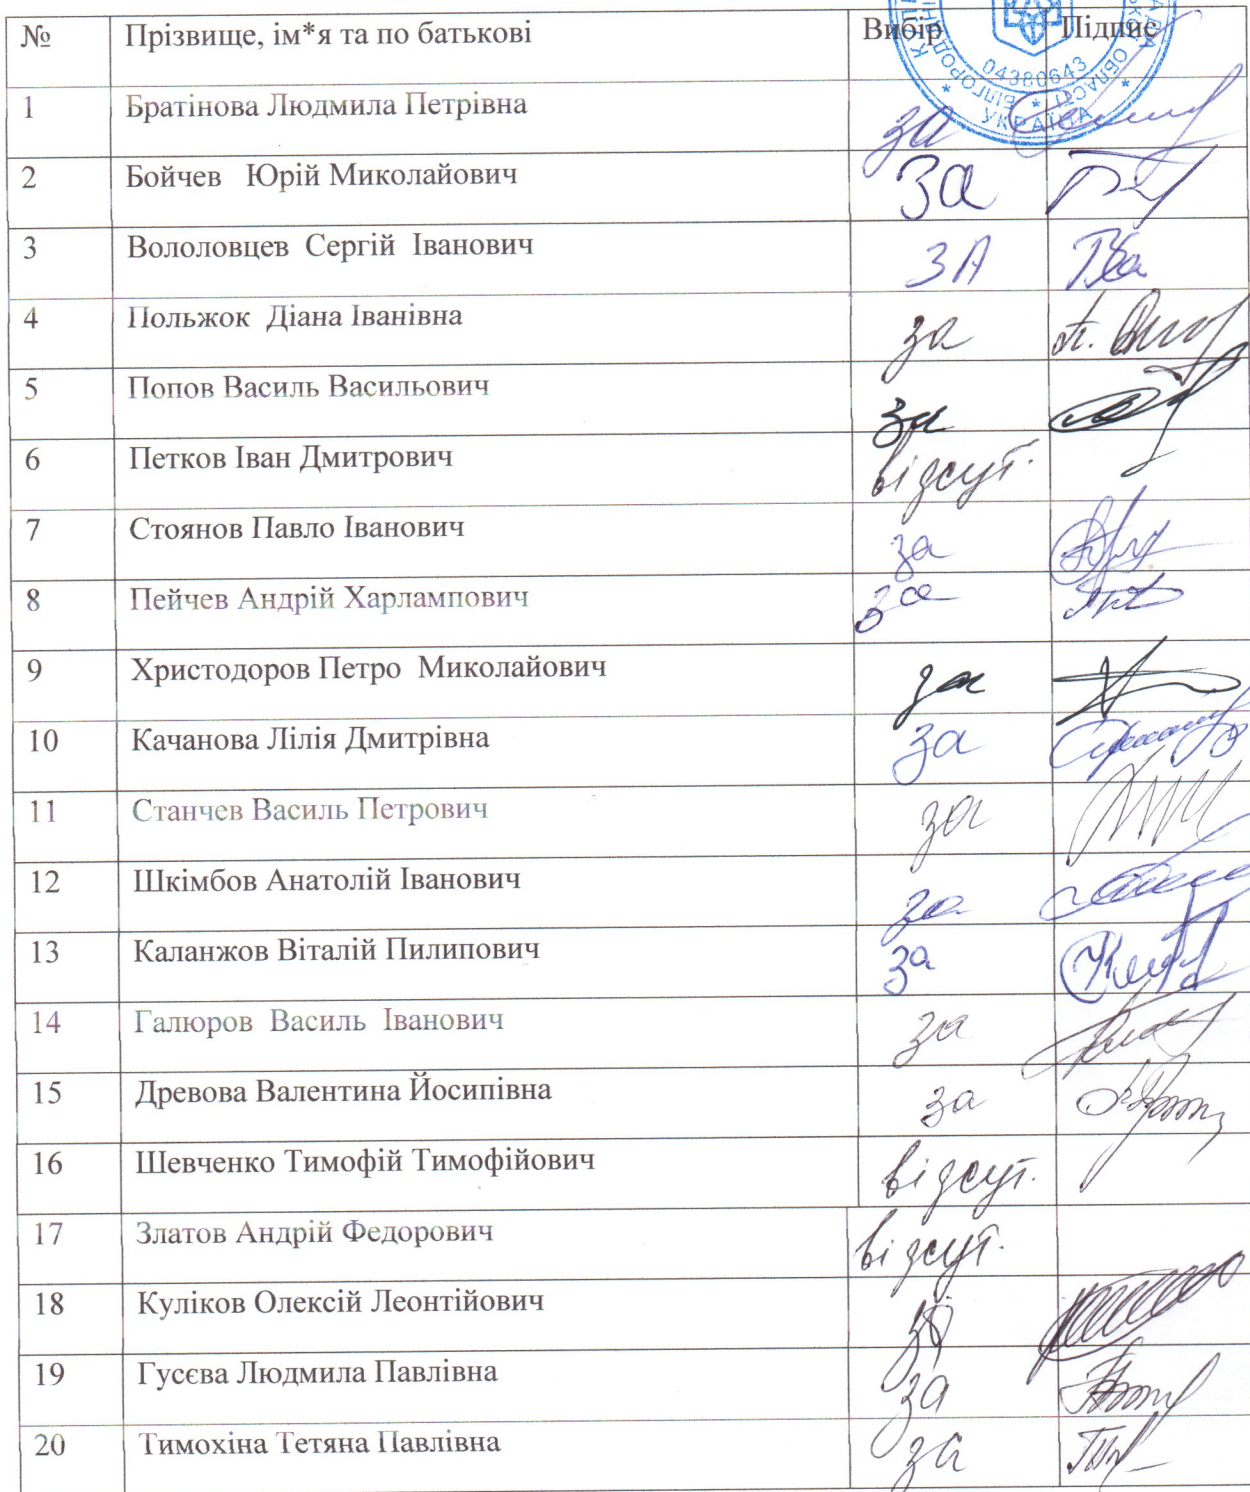 № Прізвище, ім*я та по батькові Вибір Підпис
04380643
УКРАЇНА
1 Братінова Людмила Петрівна за
2 Бойчев Юрій Миколайович за
3 Вололовцев Сергій Іванович ЗА
4 Польжок Діана Іванівна за
5 Попов Василь Васильович за
6 Петков Іван Дмитрович відсут.
7 Стоянов Павло Іванович за
8 Пейчев Андрій Харлампович за
9 Христодоров Петро Миколайович за
10 Качанова Лілія Дмитрівна за
11 Станчев Василь Петрович за
12 Шкімбов Анатолій Іванович за
13 Каланжов Віталій Пилипович за
14 Галюров Василь Іванович за
15 Древова Валентина Йосипівна за
16 Шевченко Тимофій Тимофійович відсут.
17 Златов Андрій Федорович відсут.
18 Куліков Олексій Леонтійович за
19 Гусєва Людмила Павлівна за
20 Тимохіна Тетяна Павлівна за